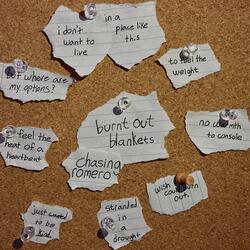 i don't
want to
live
in a
place like
this
but where are
my options?
to feel the
weight
burnt out
blankets
chasing
romero
no warmth
to console
feel the
heat of a
heartbeat
wish could burn
out
just wanted to
be kind
stranded
in a
drought